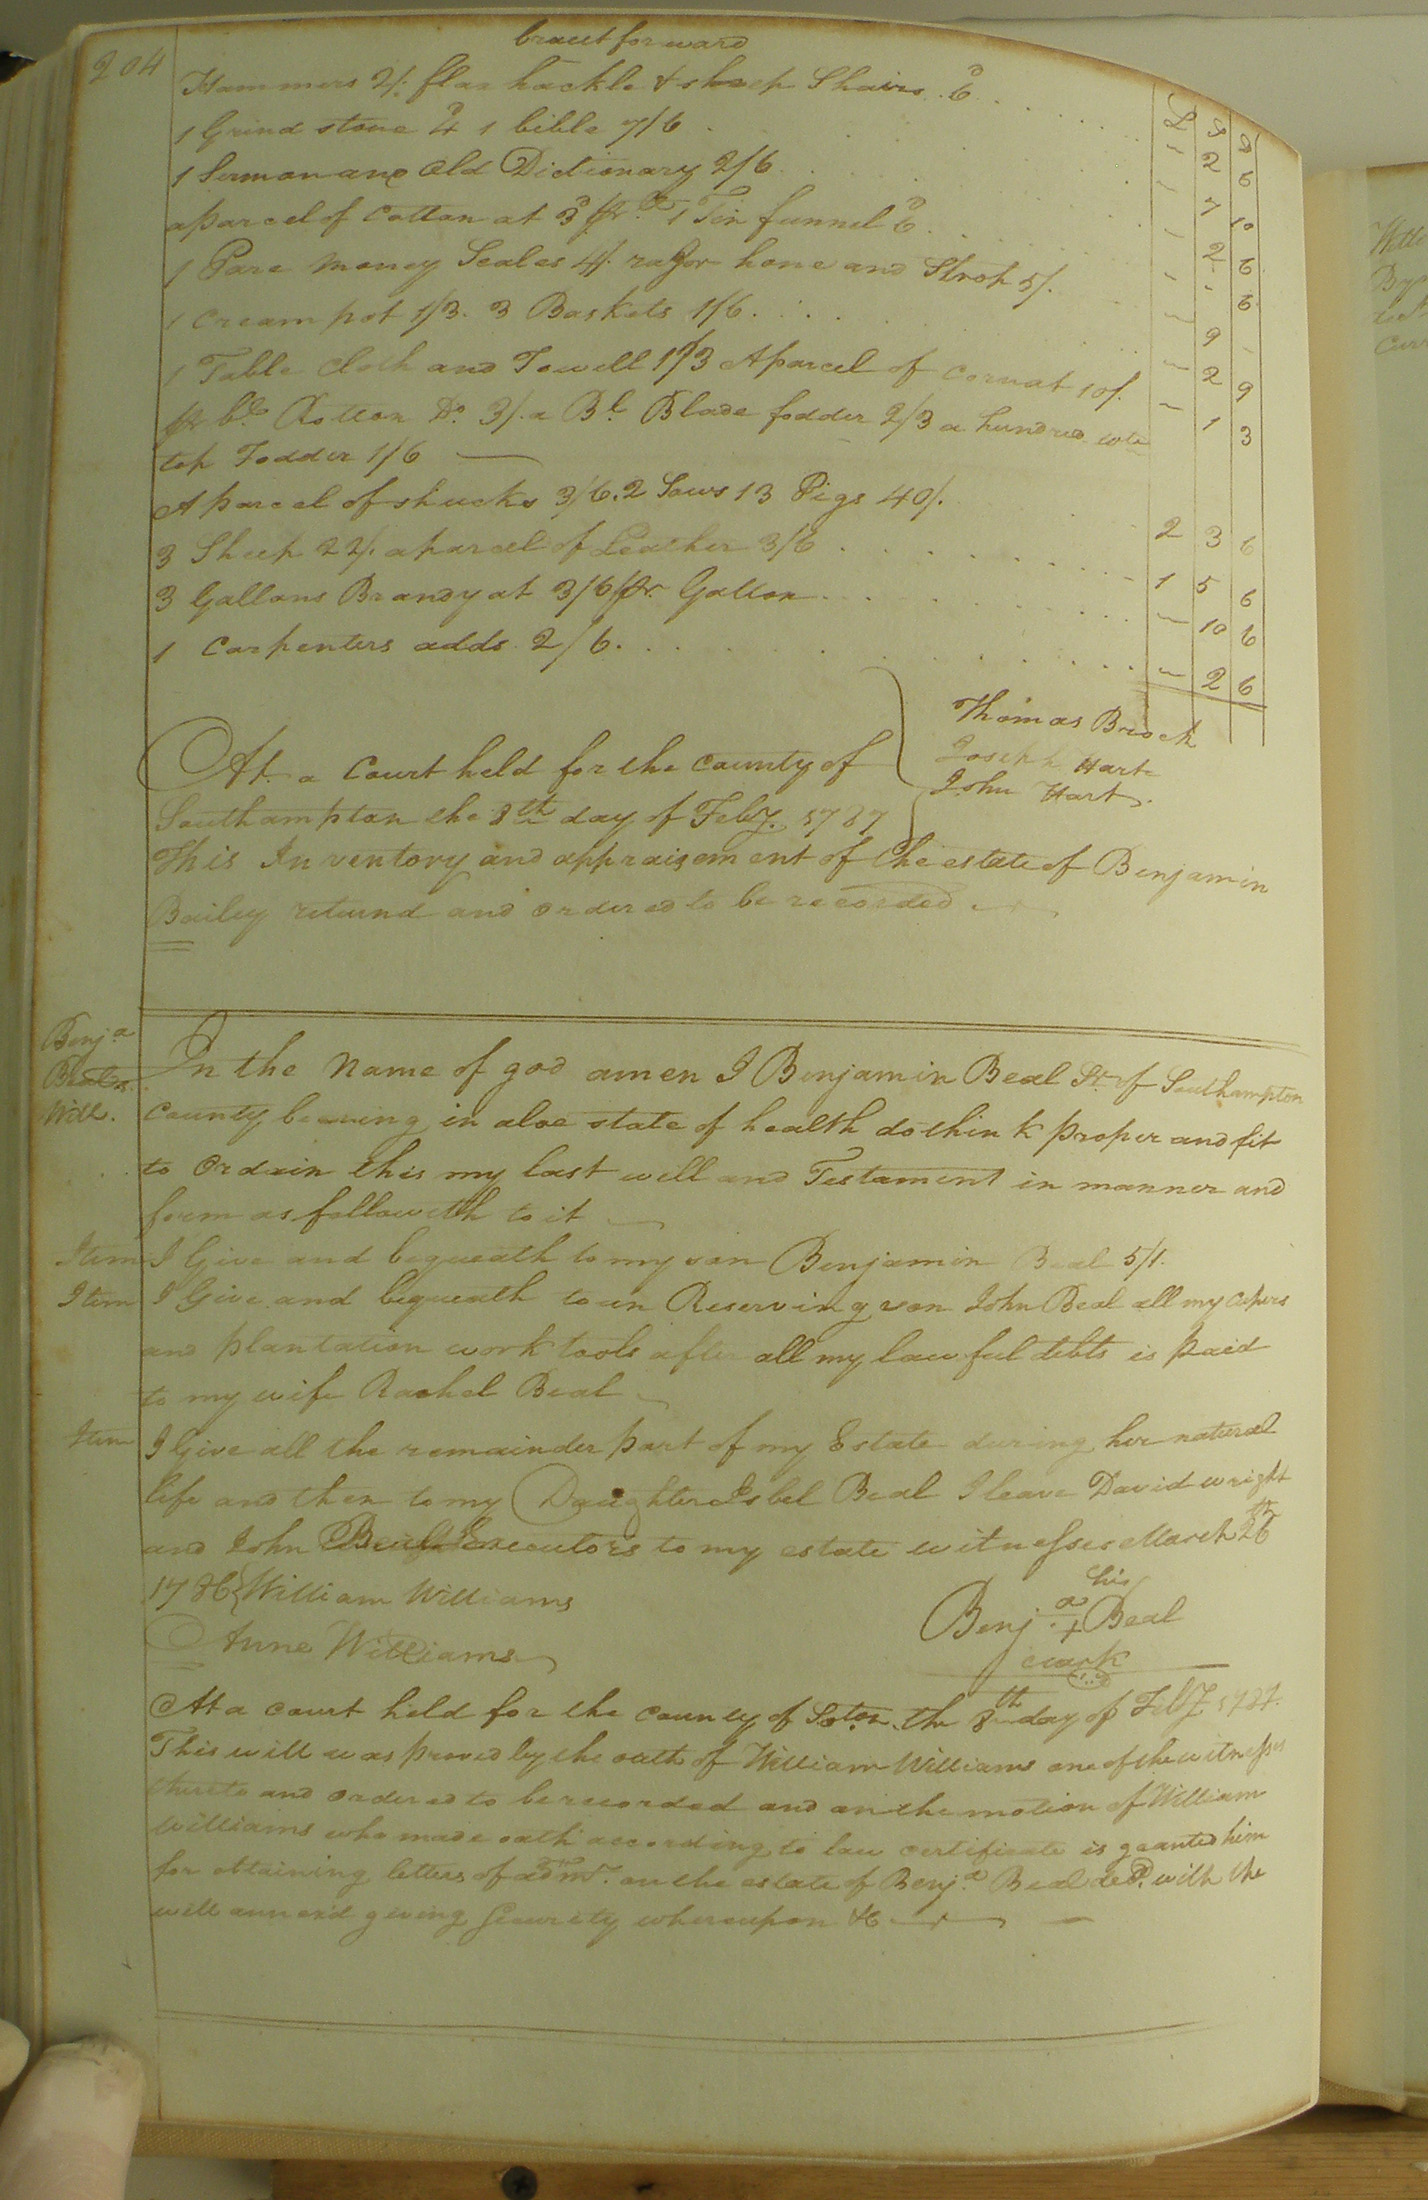 204
braut forward
£ S D
Hammers 2/. flax hackle & sheep Shairs . 6d " 2 6
1 Grind stone 4d 1 bible 7/6 . " 7 10
1 Sermon and Old Dictionary 2/6 " 2 6
a parcel of Cotton at 3d pr. 1 Tin funnel 6d " " 6
1 Pare money Scales 4/. razor hone and Strop 5/. " 9 "
1 Cream pot 1/3. 3 Baskets 1/6 . " 2 9
1 Table Cloth and Towell 1/3 A parcel of Corn at 10/. " 1 3
pr bl. Rotten Do. 3/. a Bl. Blade fodder 2/3 a hundred wte
top Fodder 1/6
A parcel of shucks 3/6. 2 Sows 13 Pigs 40/. 2 3 6
3 Sheep 22/. a parcel of Leather 3/6 1 5 6
3 Gallons Brandy at 3/6 pr. Gallon " 10 6
1 Carpenters adds 2/6. " 2 6
Thomas Brock
Joseph Hart
John Hart.
At a Court held for the County of
Southampton the 8th day of Feby. 1787
This Inventory and appraisement of the estate of Benjamin
Bailey returnd and ordered to be recorded
Benja
Will.
In the Name of god amen I Benjamin Beal Sr. of Southampton
County beaing in aloe state of health do think proper and fit
to Ordain this my last will and Testament in manner and
form as followeth to it
Item I Give and bequeath to my son Benjamin Beal 5/1.
Item I Give and bequeath to un Reserving son John Beal all my Cupers
and plantation work tools after all my lawful debts is paid
to my wife Rachel Beal
Item I Give all the remainder part of my Estate during her natural
life and then to my Daughter Isbel Beal I leave David wright
and John Beal Executors to my estate witnesses March 26th
1786 William Williams
Anne Williams
his
Benja + Beal
mark
At a court held for the County of Soton. the 8th day of Feby 1787.
This will was proved by the oath of William Williams one of the witnesses
thereto and ordered to be recorded and on the motion of William
Williams who made oath according to law certificate is granted him
for obtaining letters of admr. on the estate of Benja Beal decd. with the
will annexd giving Security whereupon &c